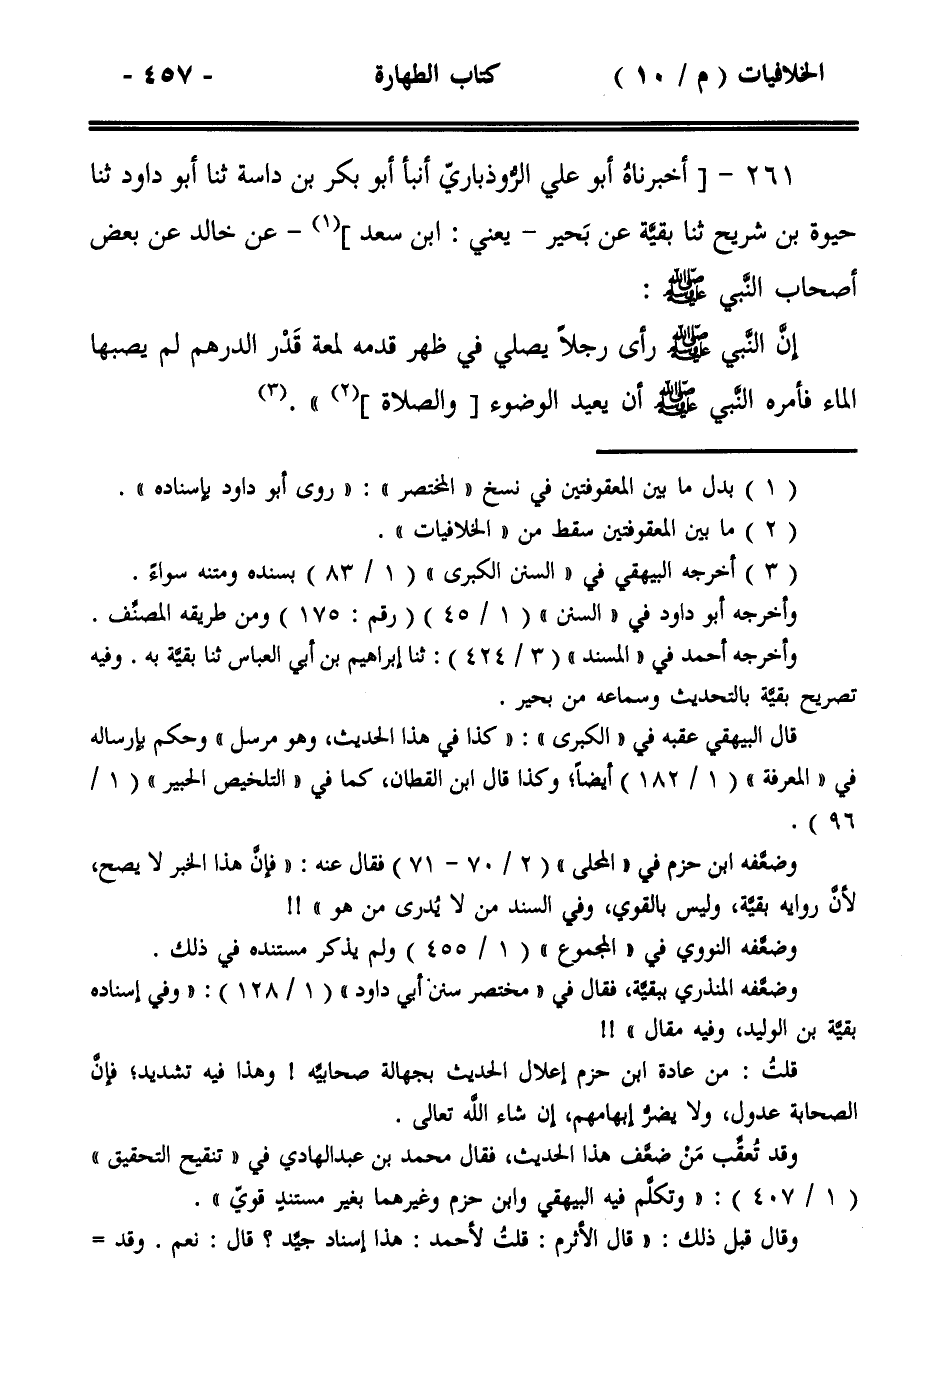 الخلافيات ( م / ١٠ ) كتاب الطهارة - ٤٥٧ -
٢٦١ - [ أخبرناهُ أبو علي الرُّوذباريّ أنبأ أبو بكر بن داسة ثنا أبو داود ثنا
حيوة بن شريح ثنا بقيَّة عن بَحير - يعني : ابن سعد ](١) - عن خالد عن بعض
أصحاب النَّبي ﷺ :
إنَّ النَّبي ﷺ رأى رجلاً يصلي في ظهر قدمه لمعة قَدْر الدرهم لم يصبها
الماء فأمره النَّبي ﷺ أن يعيد الوضوء [ والصلاة ](٢) » .(٣)
( ١ ) بدل ما بين المعقوفتين في نسخ « المختصر » : « روى أبو داود بإسناده » .
( ٢ ) ما بين المعقوفتين سقط من « الخلافيات » .
( ٣ ) أخرجه البيهقي في « السنن الكبرى » ( ١ / ٨٣ ) بسنده ومتنه سواءً .
وأخرجه أبو داود في « السنن » ( ١ / ٤٥ ) ( رقم : ١٧٥ ) ومن طريقه المصنَّف .
وأخرجه أحمد في « المسند » ( ٣ / ٤٢٤ ) : ثنا إبراهيم بن أبي العباس ثنا بقيَّة به . وفيه
تصريح بقيَّة بالتحديث وسماعه من بحير .
قال البيهقي عقبه في « الكبرى » : « كذا في هذا الحديث، وهو مرسل » وحكم بإرساله
في « المعرفة » ( ١ / ١٨٢ ) أيضاً؛ وكذا قال ابن القطان، كما في « التلخيص الحبير » ( ١ /
٩٦ ) .
وضعَّفه ابن حزم في « المحلى » ( ٢ / ٧٠ - ٧١ ) فقال عنه : « فإنَّ هذا الخبر لا يصح،
لأنَّ روايه بقيَّة، وليس بالقوي، وفي السند من لا يُدرى من هو » !!
وضعَّفه النووي في « المجموع » ( ١ / ٤٥٥ ) ولم يذكر مستنده في ذلك .
وضعَّفه المنذري ببقيَّة، فقال في « مختصر سنن أبي داود » ( ١ / ١٢٨ ) : « وفي إسناده
بقيَّة بن الوليد، وفيه مقال » !!
قلتُ : من عادة ابن حزم إعلال الحديث بجهالة صحابيَّه ! وهذا فيه تشديد؛ فإنَّ
الصحابة عدول، ولا يضرُّ إبهامهم، إن شاء اللَّه تعالى .
وقد تُعقَّب مَنْ ضعَّف هذا الحديث، فقال محمد بن عبدالهادي في « تنقيح التحقيق »
( ١ / ٤٠٧ ) : « وتكلَّم فيه البيهقي وابن حزم وغيرهما بغير مستندٍ قويّ » .
وقال قبل ذلك : « قال الأثرم : قلتُ لأحمد : هذا إسناد جيَّد ؟ قال : نعم . وقد =